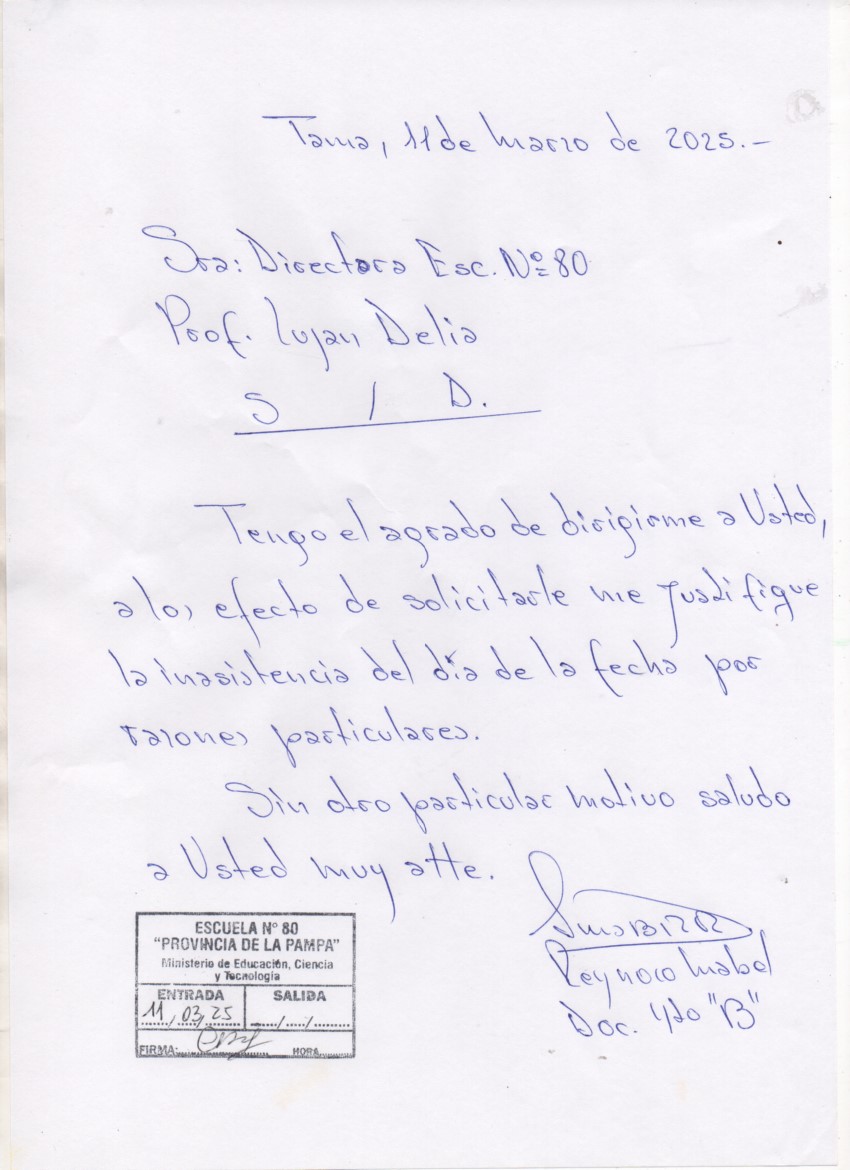 Tama, 11 de Marzo de 2025.-
Sra: Directora Esc. Nº 80
Prof. Lujan Delia
S / D.
Tengo el agrado de dirigirme a Usted,
a los efecto de solicitarle me justifique
la inasistencia del día de la fecha por
razones particulares.
Sin otro particular motivo saludo
a Usted muy atte.
Reynoso Mabel
Doc. 4to "B"
ESCUELA Nº 80
"PROVINCIA DE LA PAMPA"
Ministerio de Educación, Ciencia
y Tecnología
ENTRADA SALIDA
11/03/25 .../.../......
FIRMA:.................... HORA.........